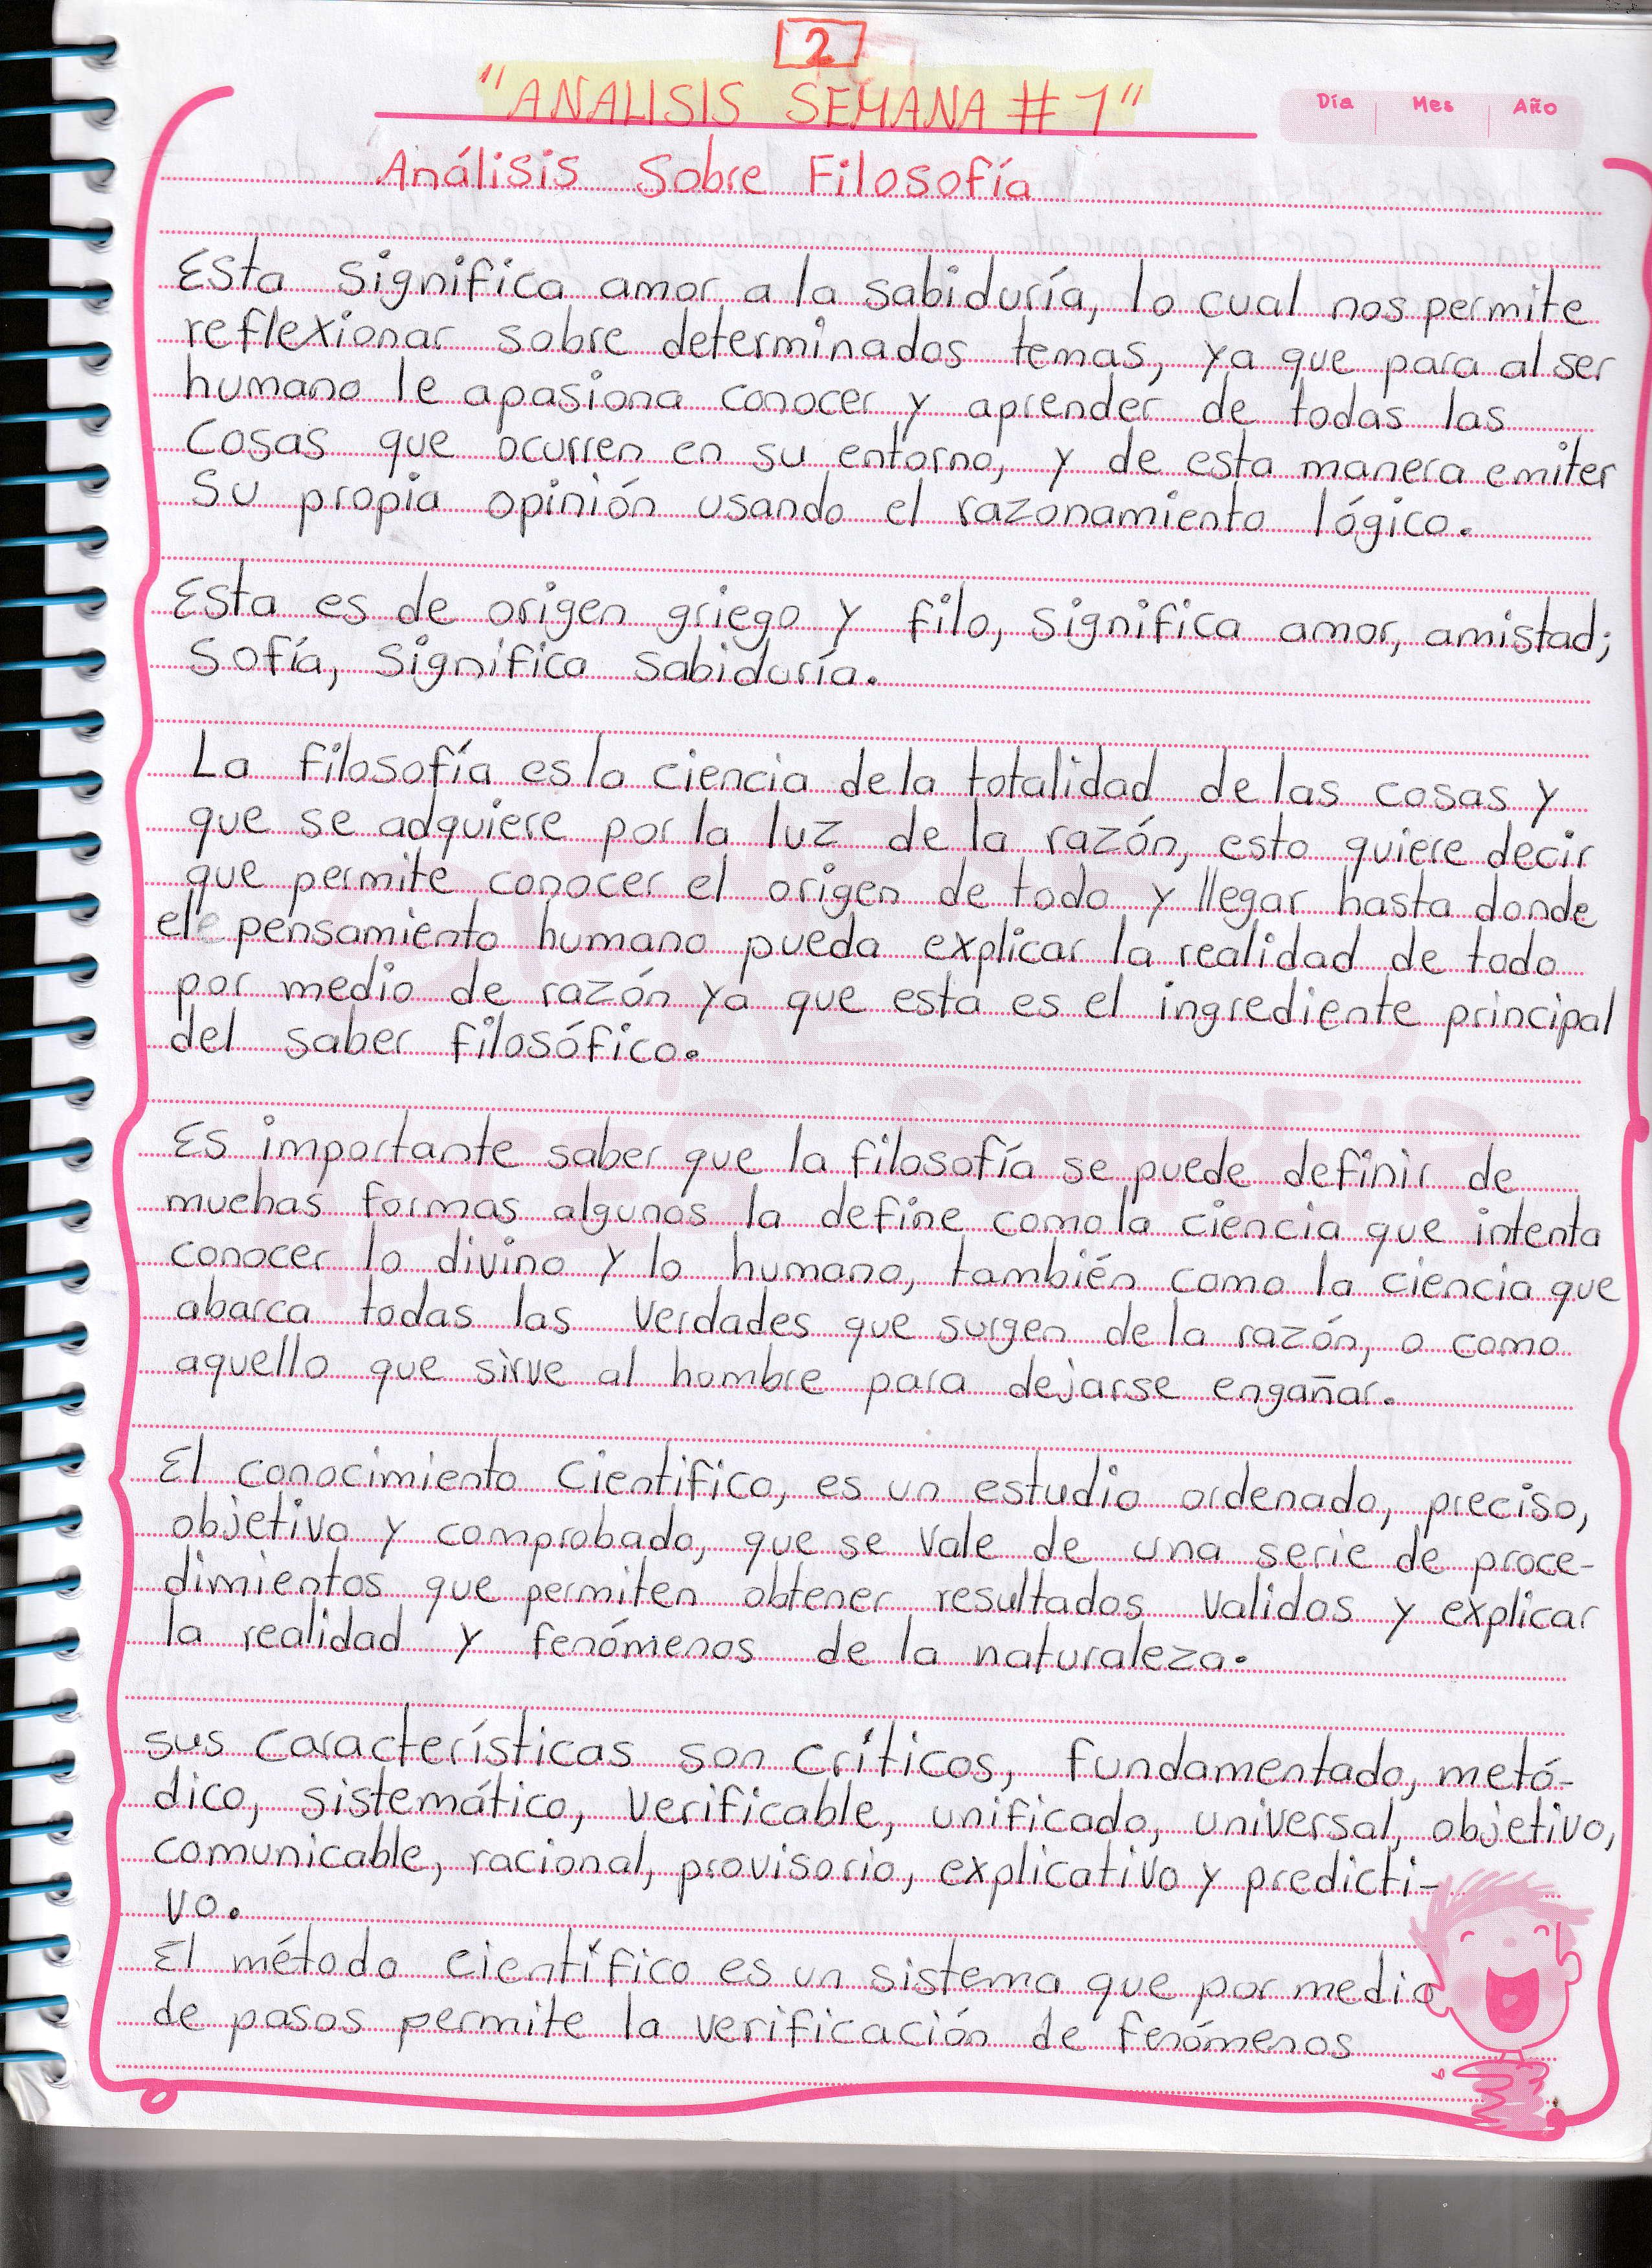 2
"ANALISIS SEMANA # 1"
Día Mes Año
Análisis Sobre Filosofía
Esta significa amor a la sabiduría, lo cual nos permite
reflexionar sobre determinados temas, ya que para al ser
humano le apasiona conocer y aprender de todas las
cosas que ocurren en su entorno, y de esta manera emiter
su propia opinión usando el razonamiento lógico.
Esta es de origen griego y filo, significa amor, amistad;
Sofía, significa sabiduría.
La filosofía es la ciencia de la totalidad de las cosas y
que se adquiere por la luz de la razón, esto quiere decir
que permite conocer el origen de todo y llegar hasta donde
el pensamiento humano pueda explicar la realidad de todo
por medio de razón ya que esta es el ingrediente principal
del saber filosófico.
Es importante saber que la filosofía se puede definir de
muchas formas algunos la define como la ciencia que intenta
conocer lo divino y lo humano, también como la ciencia que
abarca todas las verdades que surgen de la razón, o como
aquello que sirve al hombre para dejarse engañar.
El conocimiento científico, es un estudio ordenado, preciso,
objetivo y comprobado, que se vale de una serie de proce-
dimientos que permiten obtener resultados validos y explicar
la realidad y fenómenos de la naturaleza.
sus características son críticos, fundamentado, metó-
dico, sistemático, verificable, unificado, universal, objetivo,
comunicable, racional, provisorio, explicativo y predicti-
vo.
El método científico es un sistema que por medio
de pasos permite la verificación de fenómenos